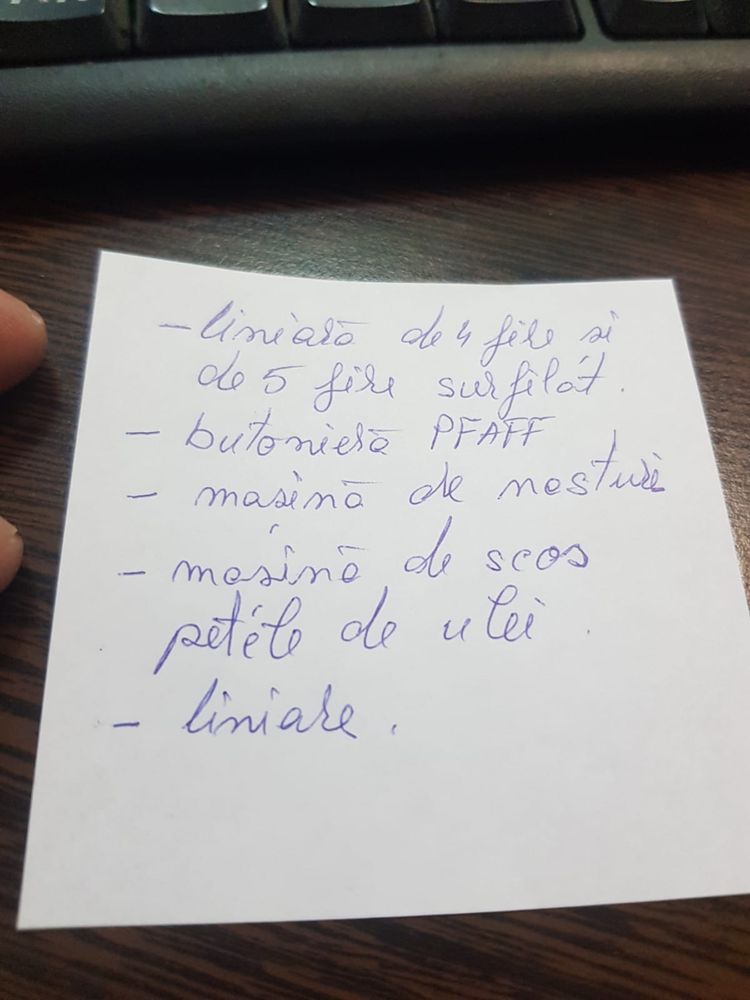 - liniară de 4 fire si
de 5 fire surfilat.
- butonieră PFAFF
- mașină de nasturi
- masină de scos
petele de ulei.
- liniare.